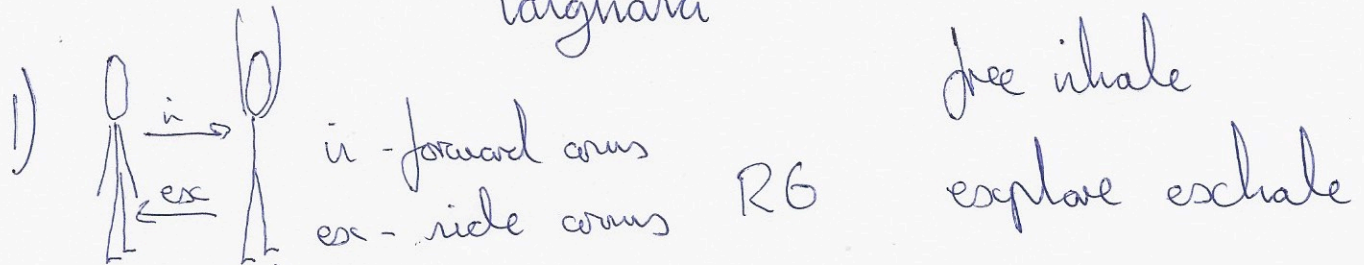 langhana
1)
in
ex
in - forward arms
ex - side arms
R6
free inhale
explore exhale